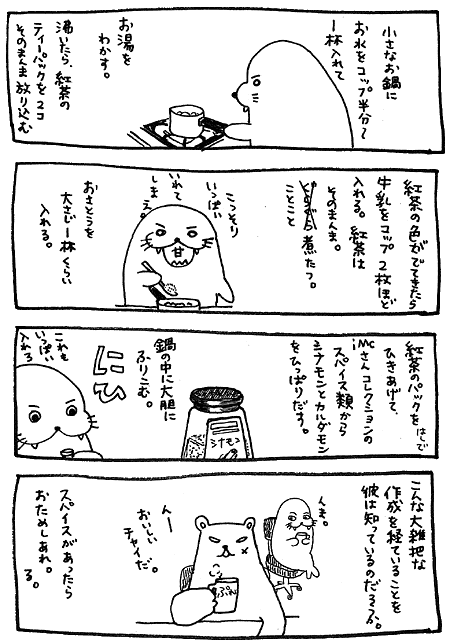 小さなお鍋に
お水をコップ半分〜
一杯入れて
お湯を
わかす。
沸いたら、紅茶の
ティーパックを2コ
そのまんま放り込む
紅茶の色がでてきたら
牛乳をコップ2杯ほど
入れる。紅茶は
そのまんま。
ことこと
煮たつ。
こっそり
いっぱい
いれて
しまえ。
おさとうを
大さじ一杯くらい
入れる。
紅茶のパックをはしで
ひきあげて、
iMCさんコレクションの
スパイス類から
シナモンとカルダモン
をひっぱりだす。
シナモン
鍋の中に大胆に
ふりこむ。
にひ
これも
いっぱい
入れる
こんな大雑把な
作成を経ていることを
彼は知っているのだろうか。
んま。
んー
おいしい
チャイだ。
ぷぃ
スパイスがあったら
おためしあれ。
る。